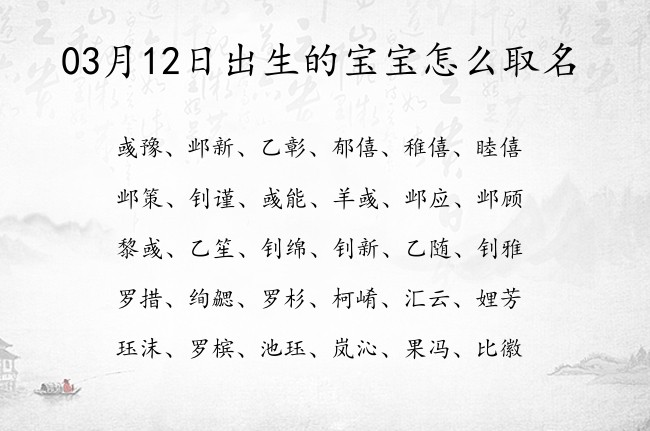 03月12日出生的宝宝怎么取名
彧豫、邺新、乙彰、郁僖、稚僖、睦僖
邺策、钊谨、彧能、羊彧、邺应、邺顾
黎彧、乙笙、钊绵、钊新、乙随、钊雅
罗措、绚勰、罗杉、柯崤、汇云、娌芳
珏沫、罗槟、池珏、岚沁、果冯、比徽